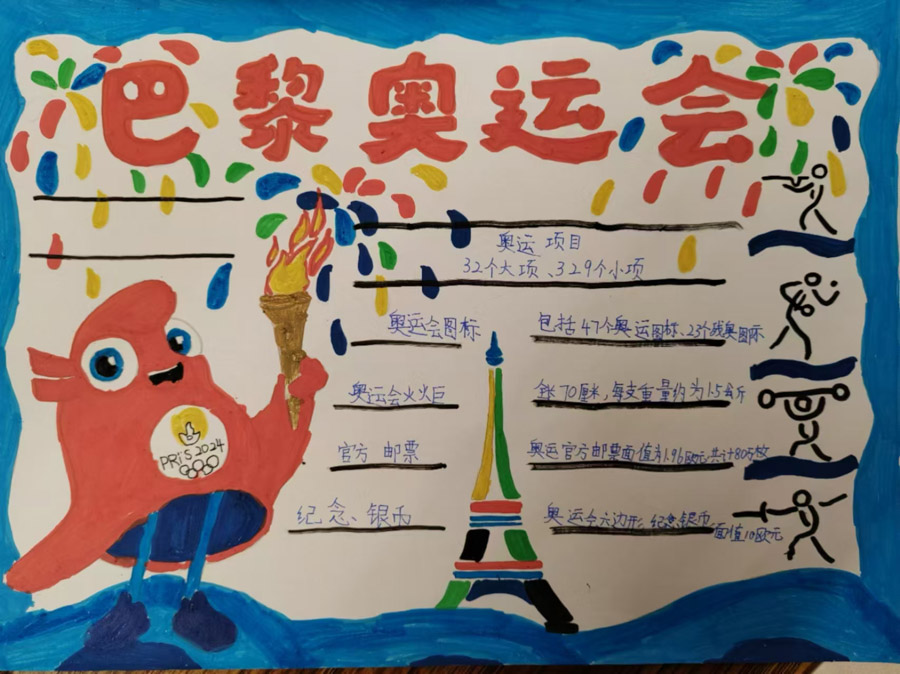 巴黎奥运会
奥运 项目
32个大项、329个小项
奥运会图标
包括47个奥运图标、23个残奥图标
奥运会火火巨
全长70厘米,每支重量约为1.5公斤
官方 邮票
奥运官方邮票面值为1.96欧元共计805枚
纪念、银币
奥运会六边形 纪念银币
面值10欧元
PRiS 2024